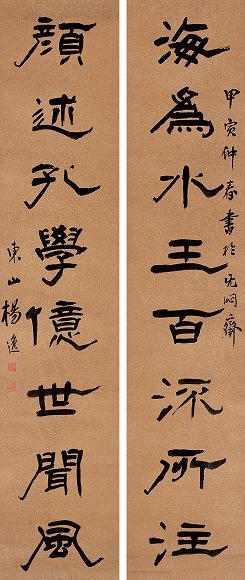 甲寅仲春書於无悶齋
海為水王百派所注
顏述孔學億世聞風
東山楊逸